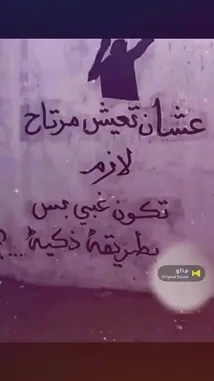 عشان تعيش مرتاح
لازم
تكون غبي بس
بطريقة ذكية...
glip
Original Sound